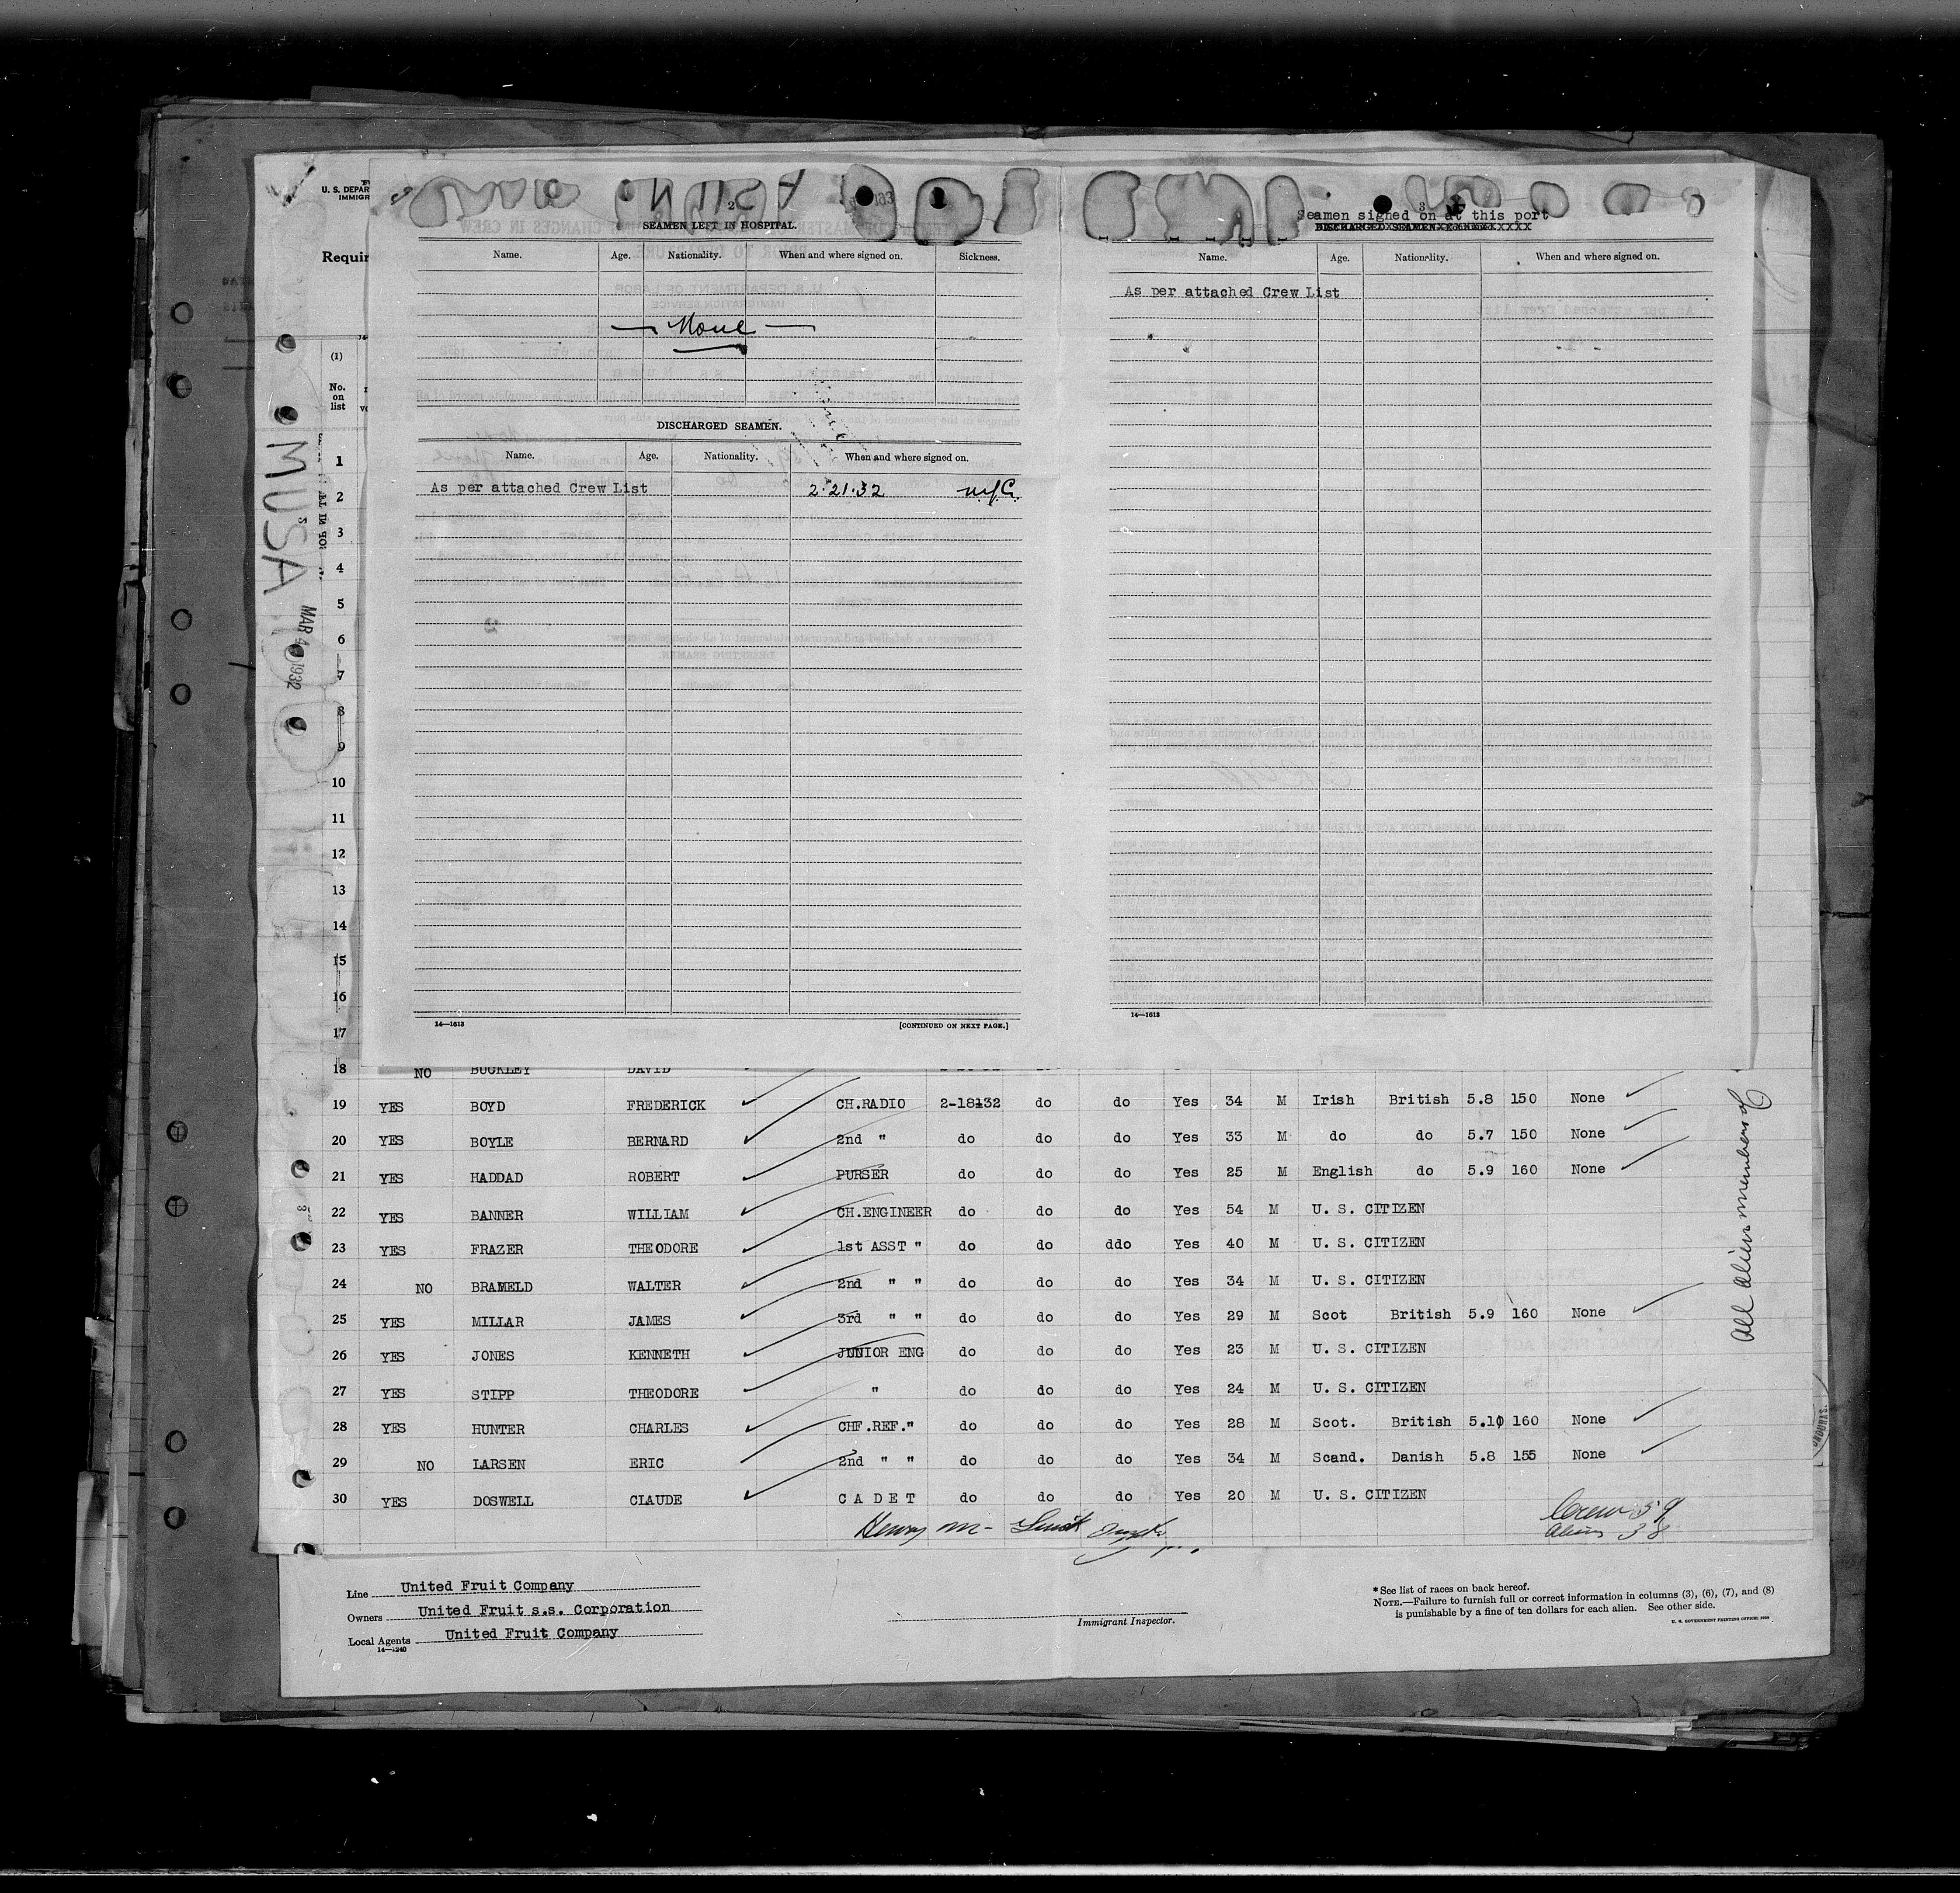 U. S. DEPAR
IMMIGR
Requir
(1)
No.
on
list
MUSA
MAR 4 1932
2
SEAMEN LEFT IN HOSPITAL.
Name. Age. Nationality. When and where signed on. Sickness.
— None —
DISCHARGED SEAMEN.
Name. Age. Nationality. When and where signed on.
As per attached Crew List 2.21.32 nyC.
14—1613 [CONTINUED ON NEXT PAGE.]
3
Seamen signed on at this port
DISCHARGED SEAMEN
Name. Age. Nationality. When and where signed on.
As per attached Crew List
14—1613
1
2
3
4
5
6
7
8
9
10
11
12
13
14
15
16
17
18 NO BUCKLEY DAVID
19 YES BOYD FREDERICK CH.RADIO 2-18-32 do do Yes 34 M Irish British 5.8 150 None
20 YES BOYLE BERNARD 2nd " do do do Yes 33 M do do 5.7 150 None
21 YES HADDAD ROBERT PURSER do do do Yes 25 M English do 5.9 160 None
22 YES BANNER WILLIAM CH.ENGINEER do do do Yes 54 M U. S. CITIZEN
23 YES FRAZER THEODORE 1st ASST " do do ddo Yes 40 M U. S. CITIZEN
24 NO BRAMELD WALTER 2nd " " do do do Yes 34 M U. S. CITIZEN
25 YES MILLAR JAMES 3rd " " do do do Yes 29 M Scot British 5.9 160 None
26 YES JONES KENNETH JUNIOR ENG do do do Yes 23 M U. S. CITIZEN
27 YES STIPP THEODORE " do do do Yes 24 M U. S. CITIZEN
28 YES HUNTER CHARLES CHF.REF." do do do Yes 28 M Scot. British 5.10 160 None
29 NO LARSEN ERIC 2nd " " do do do Yes 34 M Scand. Danish 5.8 155 None
30 YES DOSWELL CLAUDE C A D E T do do do Yes 20 M U. S. CITIZEN
All Alien members of
Crew 59
Aliens 38
Henry M-
Line United Fruit Company
Owners United Fruit s.s. Corporation
Local Agents United Fruit Company
14—1240
Immigrant Inspector.
*See list of races on back hereof.
NOTE.—Failure to furnish full or correct information in columns (3), (6), (7), and (8)
is punishable by a fine of ten dollars for each alien. See other side.
U. S. GOVERNMENT PRINTING OFFICE